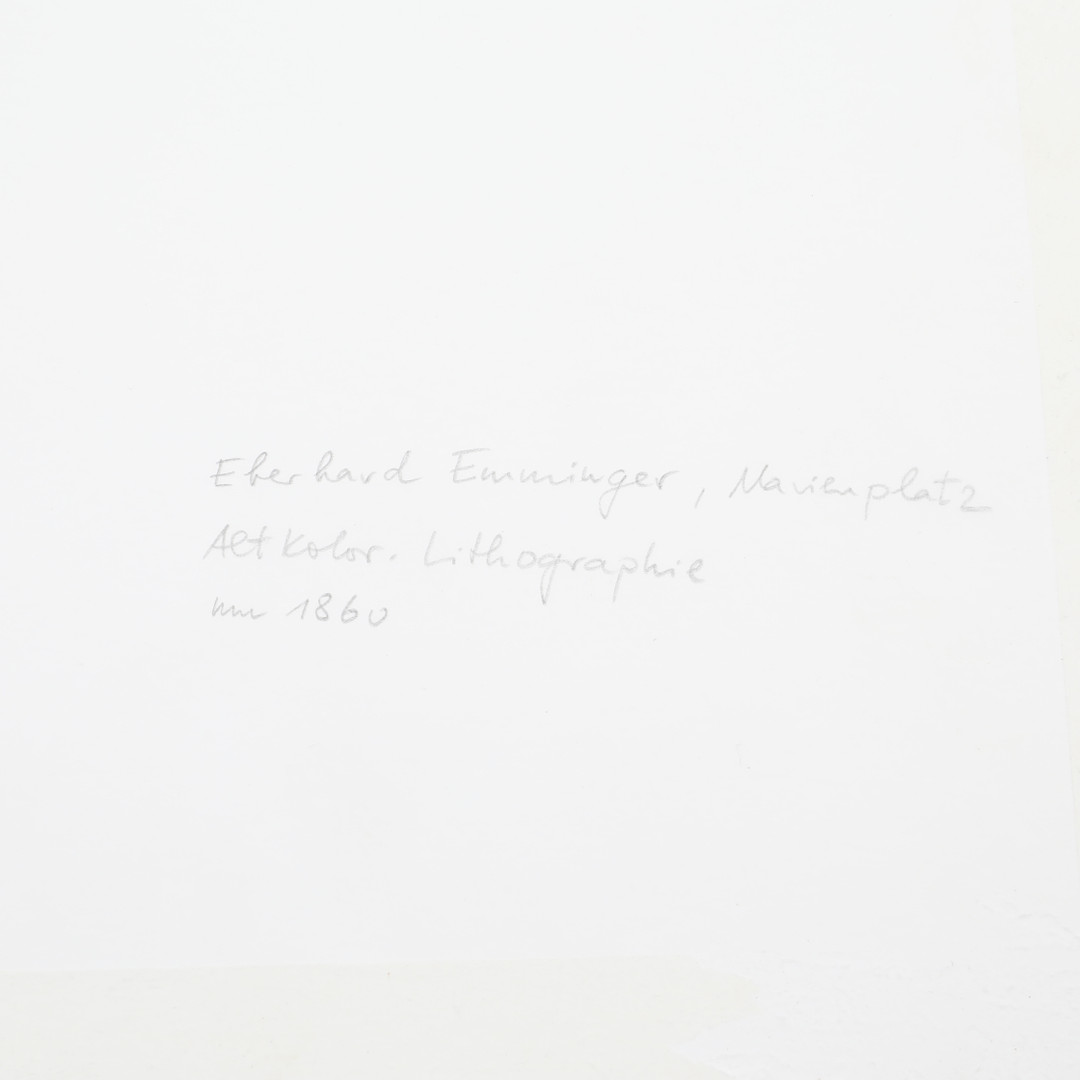 Eberhard Emminger, Marienplatz
Altkolor. Lithographie
um 1860